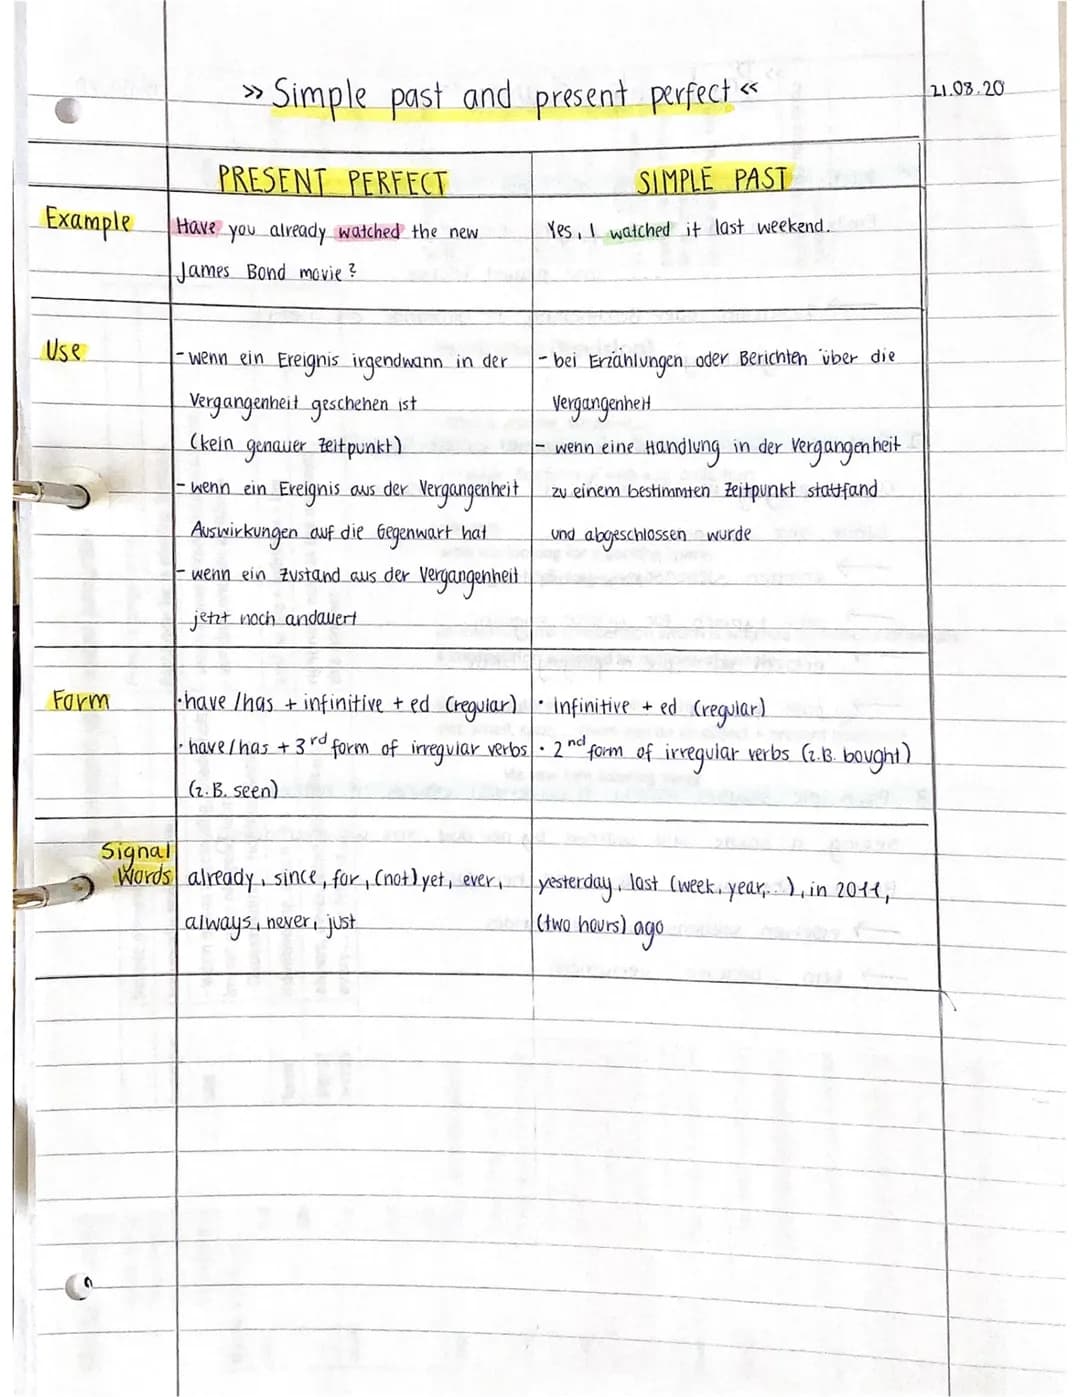 » Simple past and present perfect «
21.08.20
PRESENT PERFECT
SIMPLE PAST
Example
Have you already watched the new
James Bond movie?
Yes, I watched it last weekend.
Use
- wenn ein Ereignis irgendwann in der
Vergangenheit geschehen ist
(kein genauer Zeitpunkt)
- wenn ein Ereignis aus der Vergangenheit
Auswirkungen auf die Gegenwart hat
- wenn ein Zustand aus der Vergangenheit
jetzt noch andauert
- bei Erzählungen oder Berichten über die
Vergangenheit
- wenn eine Handlung in der Vergangenheit
zu einem bestimmten Zeitpunkt stattfand
und abgeschlossen wurde
Form
• have / has + infinitive + ed (regular)
• have / has + 3rd form of irregular verbs
(z.B. seen)
• Infinitive + ed (regular)
• 2nd form of irregular verbs (z.B. bought)
Signal
Words
already, since, for, (not) yet, ever,
always, never, just
yesterday, last (week, year,...), in 2011,
(two hours) ago